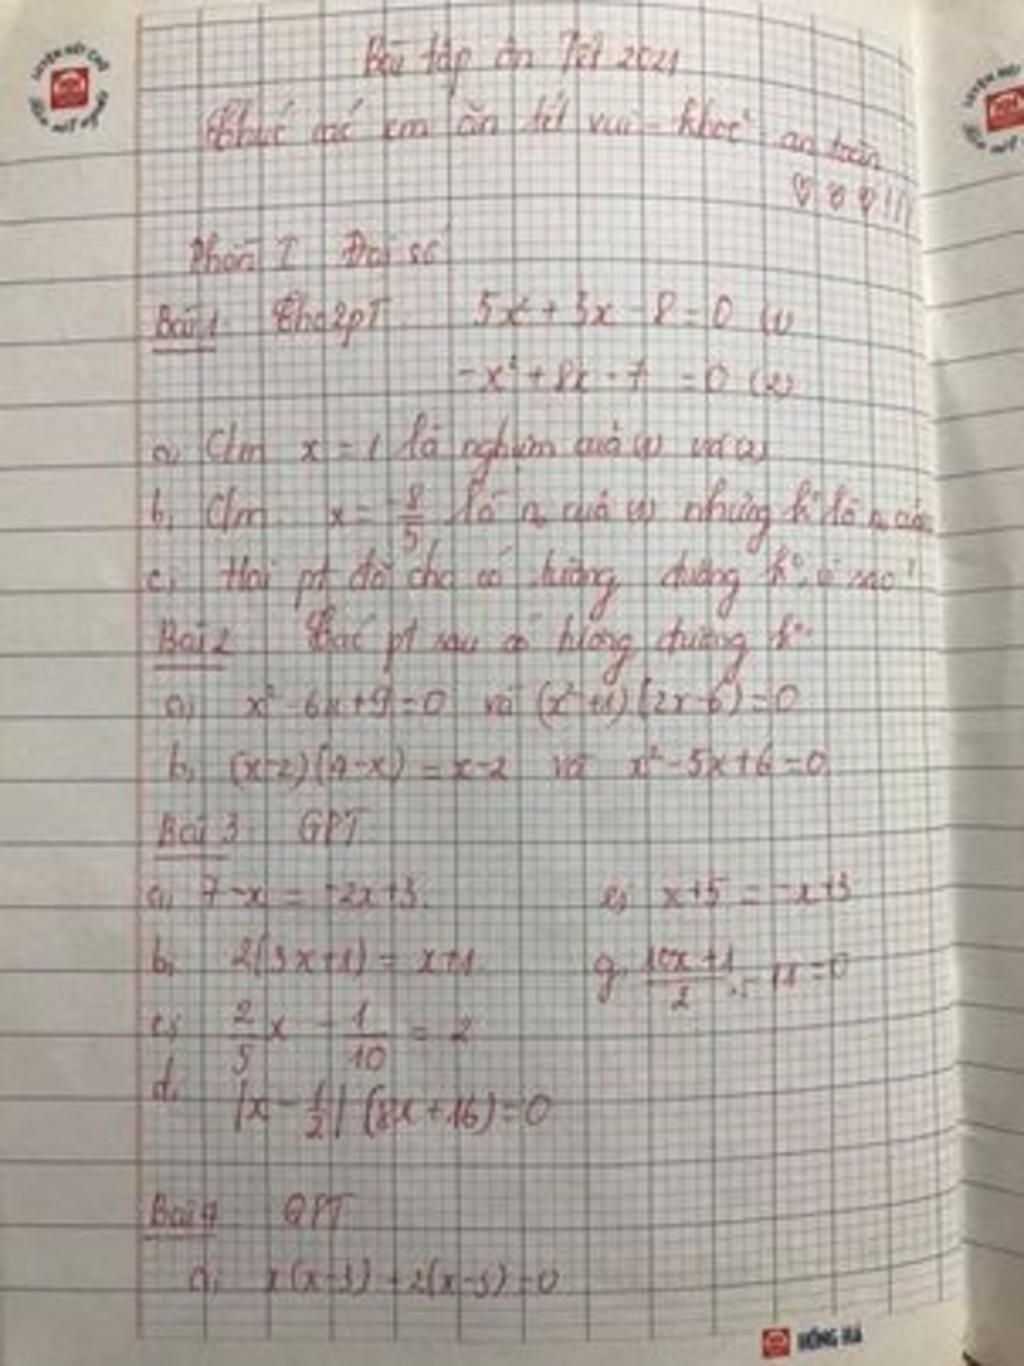 Bài tập ôn Tết 2021
Chúc các em ăn tết vui - khoẻ an toàn
♡ ♡ ♡!!!
Phần I Đại số
Bài 1 Cho 2pT: 5x² + 3x - 8 = 0 (1)
-x² + 8x - 7 = 0 (2)
a, C/m x = 1 là nghiệm của (1) và (2)
b, C/m x = -8/5 là n₀ của (1) nhưng k° là n₀ của
c, Hai pt đã cho có tương đương k°, vì sao?
Bài 2 Các pt sau có tương đương k°
a, x² - 6x + 9 = 0 và (x² + 1)(2x - 6) = 0
b, (x-2)(4-x) = x-2 và x² - 5x + 6 = 0
Bài 3 GPT
a, 7 - x = -2x + 3
e, x + 5 = -x + 3
b, 2(3x + 1) = x + 1
g, (10x + 1)/2 - 11 = 0
c, 2/5 x - 1/10 = 2
d, |x - 1/2| (8x + 16) = 0
Bài 4 GPT
a, x(x-3) + 2(x-3) = 0
HỒNG HÀ